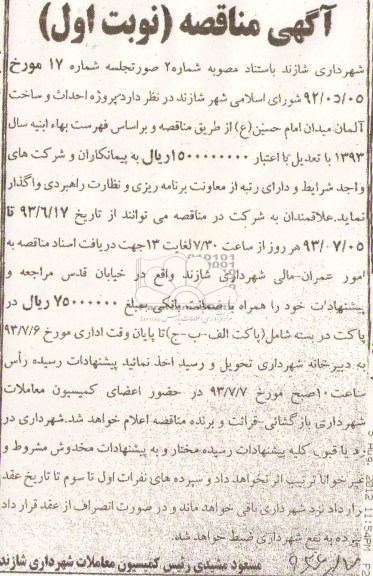 آگهی مناقصه (نوبت اول)
شهرداری شازند باستناد مصوبه شماره۲ صورتجلسه شماره ۱۷ مورخ
۹۲/۰۵/۰۵ شورای اسلامی شهر شازند در نظر دارد پروژه احداث و ساخت
آلمان میدان امام حسین(ع) از طریق مناقصه و براساس فهرست بهاء ابنیه سال
۱۳۹۳ با تعدیل با اعتبار ۱۵۰۰۰۰۰۰۰۰ریال به پیمانکاران و شرکت های
واجد شرایط و دارای رتبه از معاونت برنامه ریزی و نظارت راهبردی واگذار
نماید.علاقمندان به شرکت در مناقصه می توانند از تاریخ ۹۳/۶/۱۷ تا
۹۳/۰۷/۰۵ هر روز از ساعت ۷/۳۰ لغایت ۱۳جهت دریافت اسناد مناقصه به
امور عمران-مالی شهرداری شازند واقع در خیابان قدس مراجعه و
پیشنهادات خود را همراه با ضمانت بانکی بمبلغ ۷۵۰۰۰۰۰۰ ریال در
پاکت در بسته شامل(پاکت الف-ب-ج)تا پایان وقت اداری مورخ ۹۳/۷/۶
به دبیرخانه شهرداری تحویل و رسید اخذ نمائید پیشنهادات رسیده رأس
ساعت ۱۰صبح مورخ ۹۳/۷/۷ در حضور اعضای کمیسیون معاملات
شهرداری بازگشائی-قرائت و برنده مناقصه اعلام خواهد شد.شهرداری در
رد یا قبول کلیه پیشنهادات رسیده مختار و به پیشنهادات مخدوش مشروط و
غیرخوانا ترتیب اثر نخواهد داد و سپرده های نفرات اول تا سوم تا تاریخ عقد
قرارداد نزد شهرداری باقی خواهد ماند و در صورت انصراف از عقد قرار داد
سپرده به نفع شهرداری ضبط خواهد شد.
مسعود مشیدی رئیس کمیسیون معاملات شهرداری شازند
2012 11:54PM P2